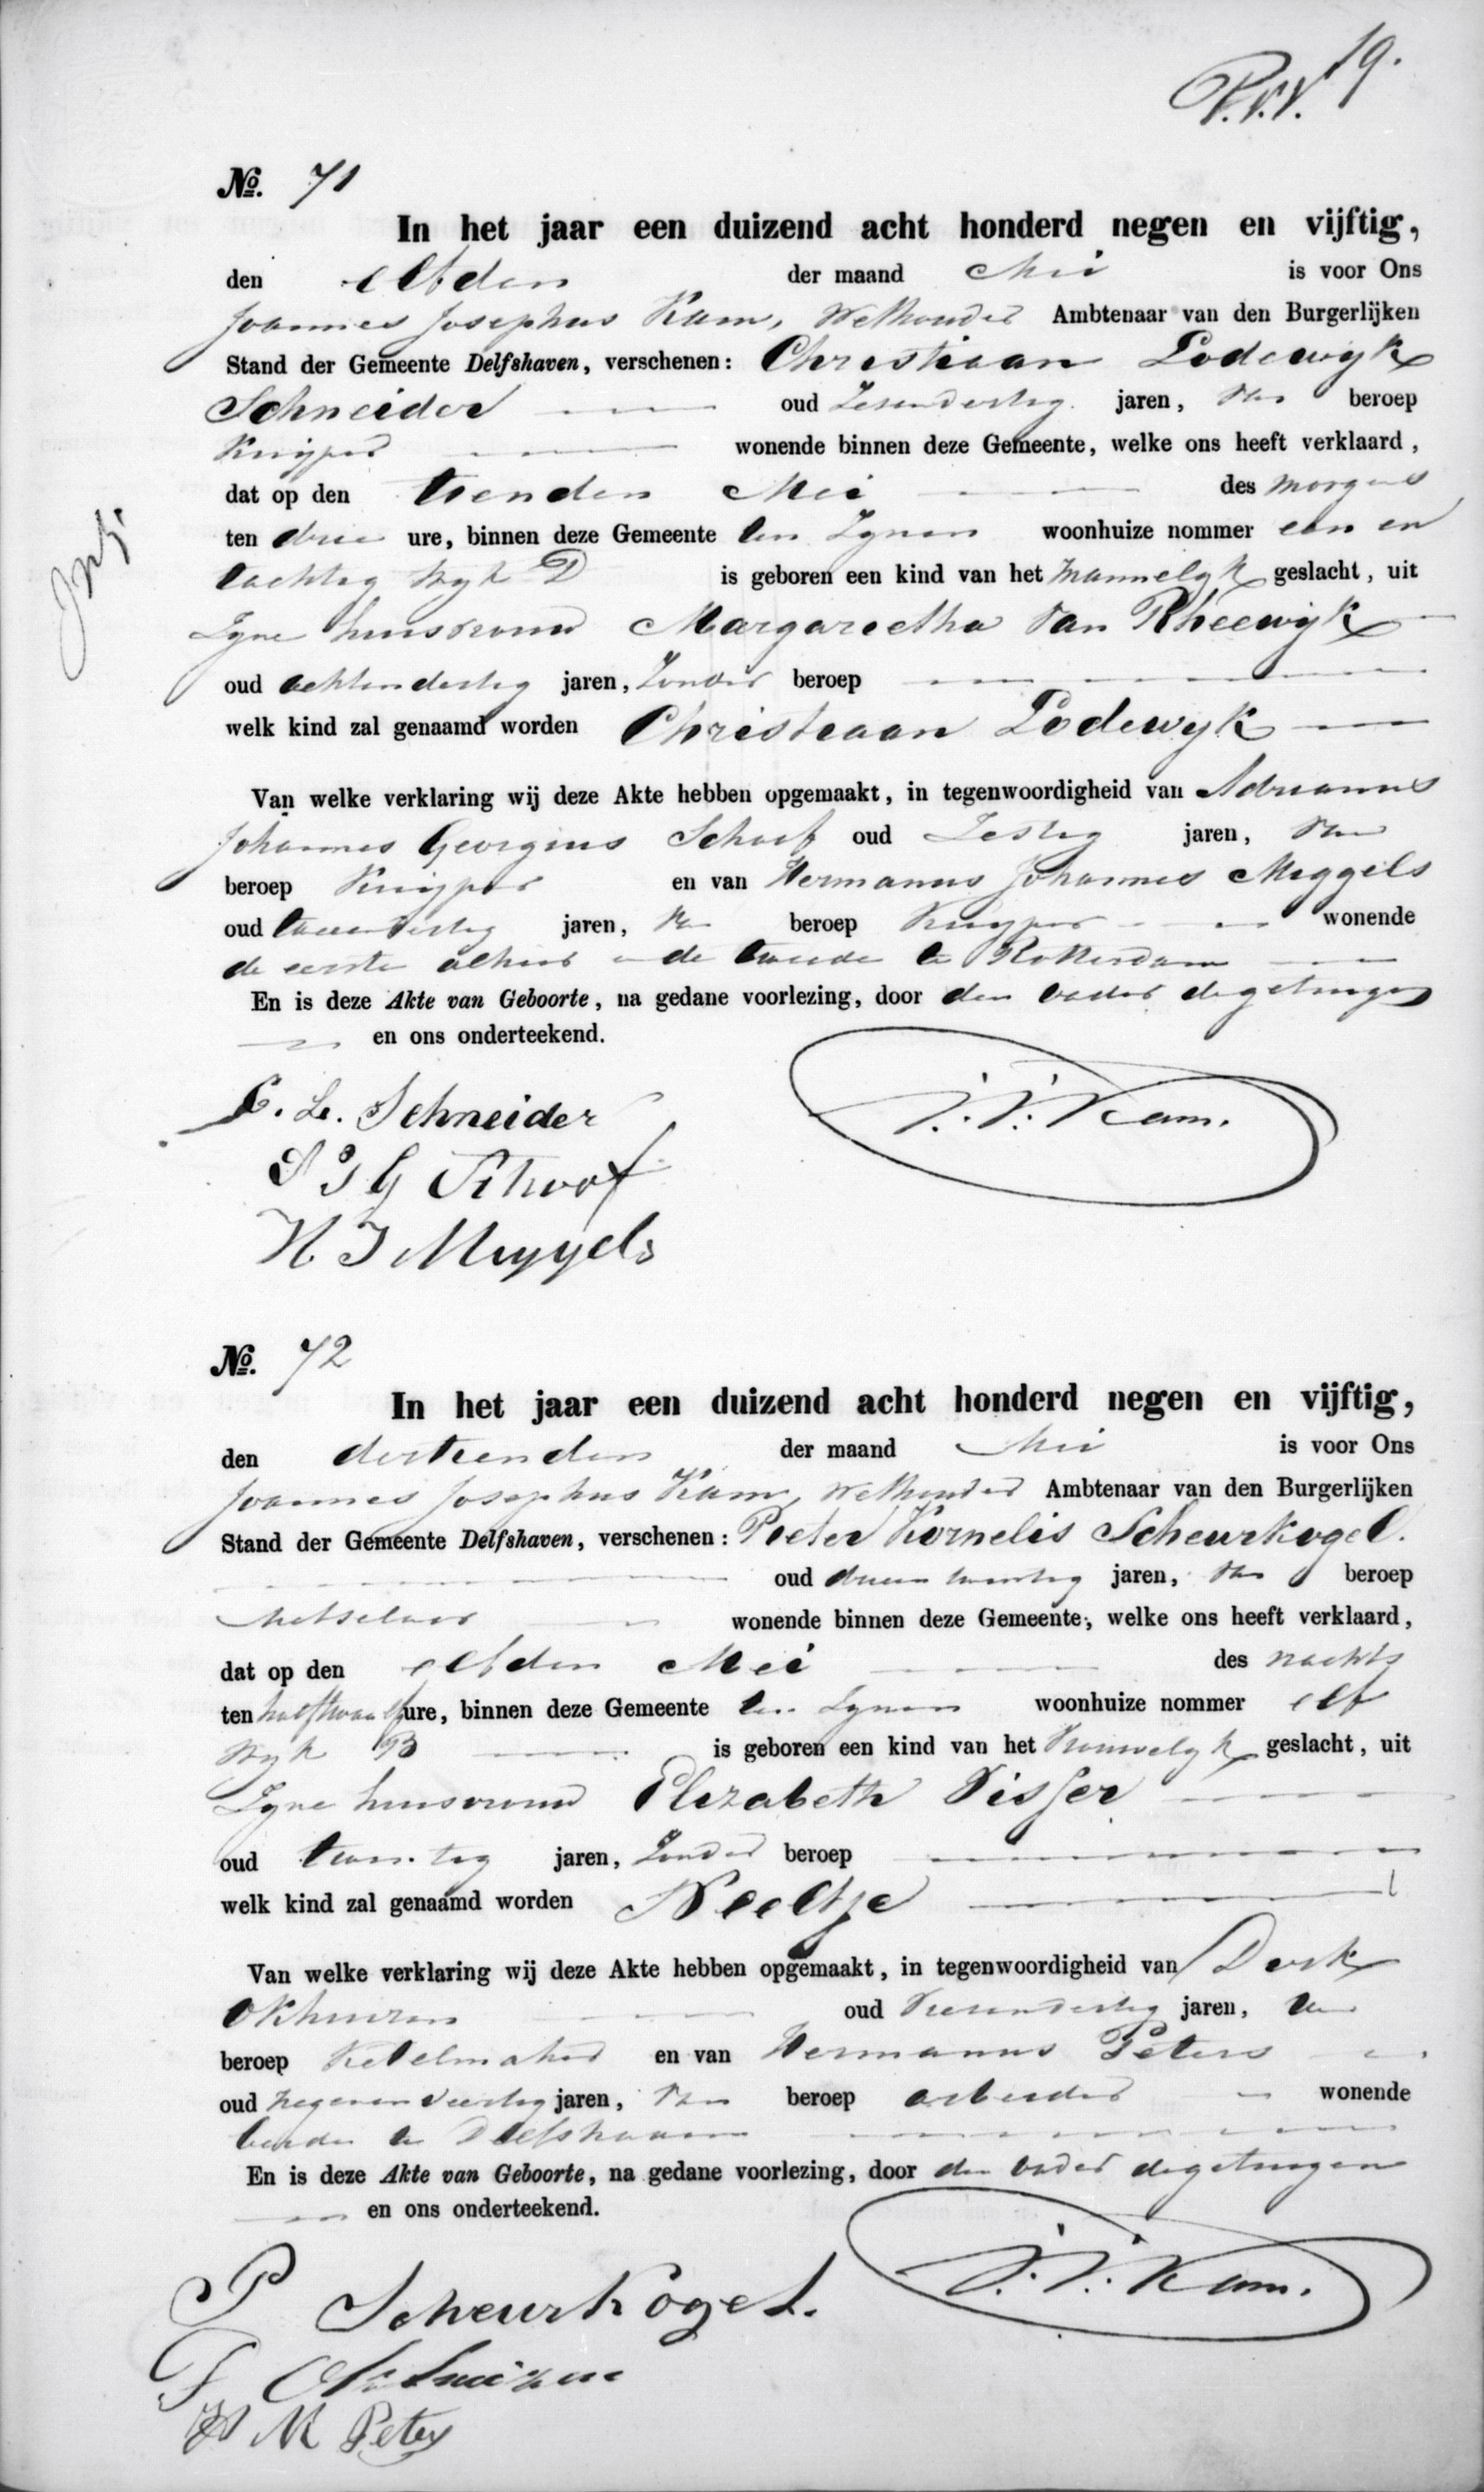 19.
No. 71
In het jaar een duizend acht honderd negen en vijftig,
den elfden der maand Mei is voor Ons
Joannes Josephus Kam, Wethouder Ambtenaar van den Burgerlijken
Stand der Gemeente Delfshaven, verschenen: Christiaan Lodewijk
Schneider oud Zesendertig jaren, van beroep
Kuijper wonende binnen deze Gemeente, welke ons heeft verklaard,
dat op den tienden Mei des morgens
ten drie ure, binnen deze Gemeente ten Zynen woonhuize nommer een en
tachtig Wyk D is geboren een kind van het Mannelyk geslacht, uit
Zyne huisvrouw Margareetha van Rheewijk
oud achtendertig jaren, Zonder beroep
welk kind zal genaamd worden Christiaan Lodewyk
Van welke verklaring wij deze Akte hebben opgemaakt, in tegenwoordigheid van Adrianus
Johannes Georgius Schoof oud Zestig jaren, van
beroep Kuijper en van Hermanus Johannes Meggels
oud tweeendertig jaren, van beroep Kuyper wonende
de eerste alhier en de tweede te Rotterdam
En is deze Akte van Geboorte, na gedane voorlezing, door den vader de getuigen
en ons onderteekend.
C. L. Schneider
J. J. Kam.
A J G Schoof
H J Meggels
No. 72
In het jaar een duizend acht honderd negen en vijftig,
den dertienden der maand Mei is voor Ons
Joannes Josephus Kam, Wethouder Ambtenaar van den Burgerlijken
Stand der Gemeente Delfshaven, verschenen: Pieter Kornelis Scheurkogel.
oud drieen twintig jaren, van beroep
Metselaar wonende binnen deze Gemeente, welke ons heeft verklaard,
dat op den elfden Mei des nachts
ten half twaalf ure, binnen deze Gemeente ten Zynen woonhuize nommer elf
Wyk B is geboren een kind van het Vrouwelyk geslacht, uit
Zyne huisvrouw Elizabeth Visser
oud twintig jaren, Zonder beroep
welk kind zal genaamd worden Neeltje
Van welke verklaring wij deze Akte hebben opgemaakt, in tegenwoordigheid van Dirk
Okhuizen oud jaren, van
beroep Ketelmaker en van Hermanus Peters
oud negenen veertig jaren, van beroep arbeider wonende
beiden te Delfshaven
En is deze Akte van Geboorte, na gedane voorlezing, door den vader de getuigen
en ons onderteekend.
P Scheurkogel.
J. J. Kam.
Okhuizen
H M Peters